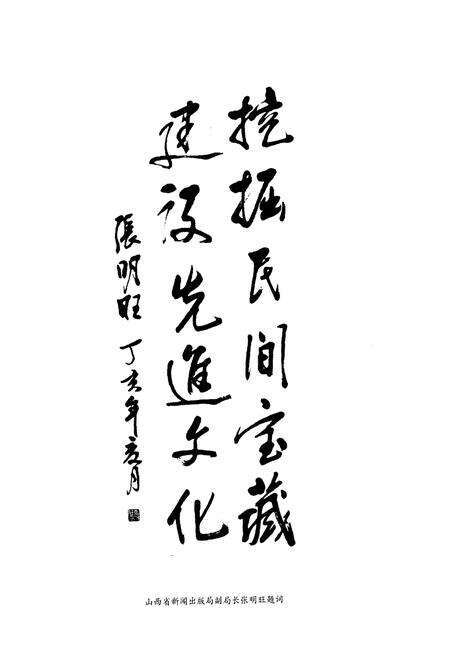 挖掘民间宝藏
建设先進文化
張明旺 丁亥年夏月
山西省新闻出版局副局长张明旺题词